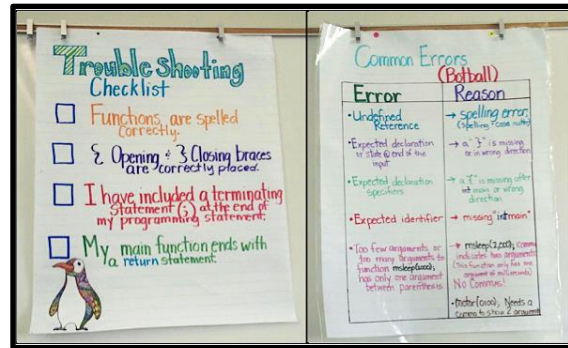 Trouble shooting
Checklist
Functions are spelled
correctly.
{ Opening & } Closing braces
are correctly placed.
I have included a terminating
statement (;) at the end of
my programming statement.
My main function ends with
a return statement.
Common Errors
(Botball)
Error
Reason
•Undefined
Reference
→ spelling error,
(spelling + case matter)
•Expected declaration
or state @ end of the
input
→ a "}" is missing
or in wrong direction
•Expected declaration
specifiers
→ a "{" is missing after
int main or wrong
direction
•Expected identifier
→ missing "int main"
•Too few arguments or
too many arguments to
function msleep(2000);
has only one argument
between parenthesis.
→ msleep(2,000); comma
indicates two arguments
(this function only has one
argument of milliseconds)
No Commas!
•motor(0100); Needs a
comma to show 2 arguments